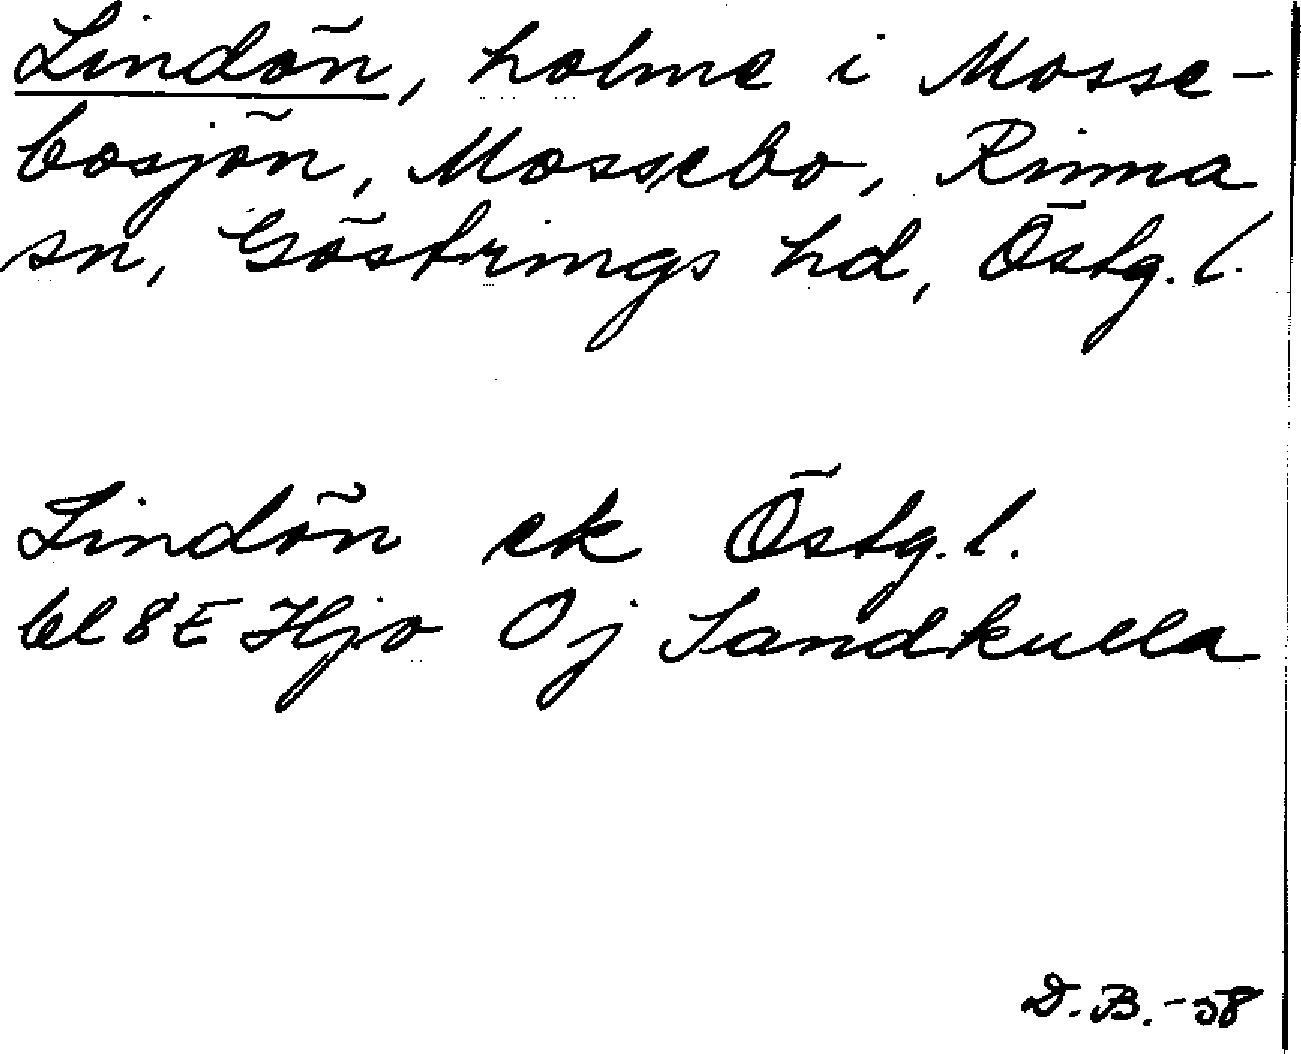 Lindön, holme i Mosse-
bosjön, Mossebo, Rinna
sn, Göstrings hd, Östg.l.
Lindön ek Östg.l.
bl 8E Hjo Oj Sandkulla
D.B.-58